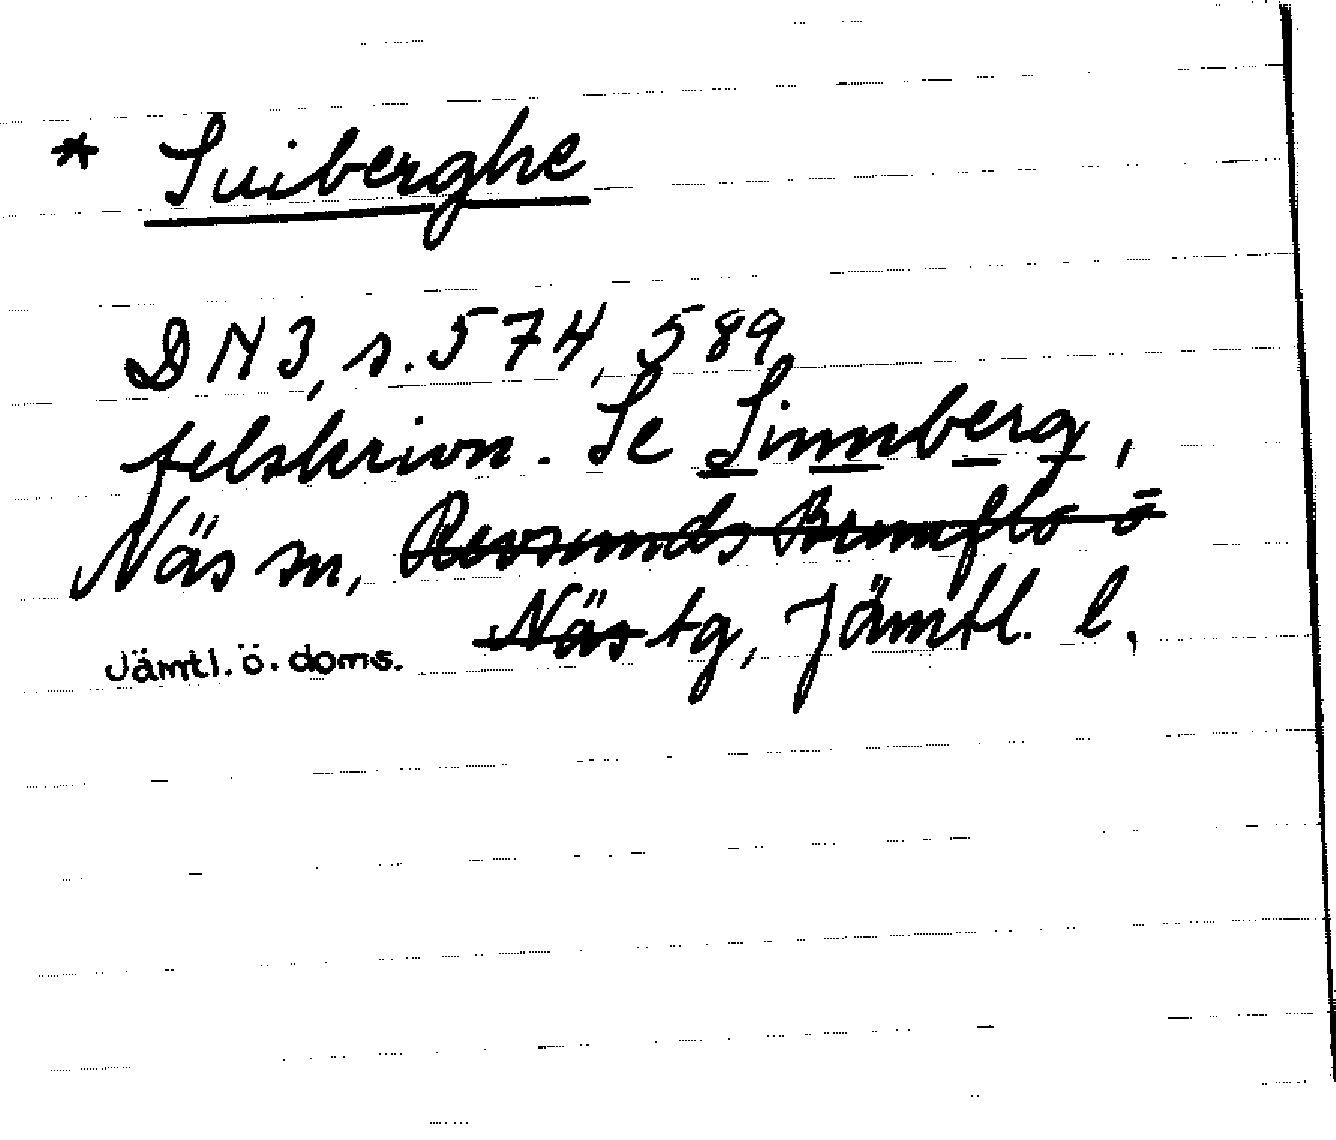 * Suiberghe
DN 3, s. 574, 589
felskrivn. Se Sinnberg,
Näs sn, Revsunds Brunflo o
Näs tg, Jämtl. l.
Jämtl. ö. doms.